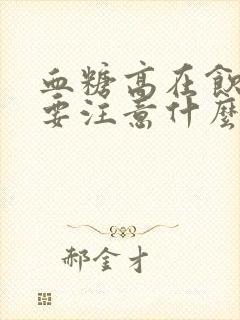 血糖高在飲
要注意什麼
郝金才